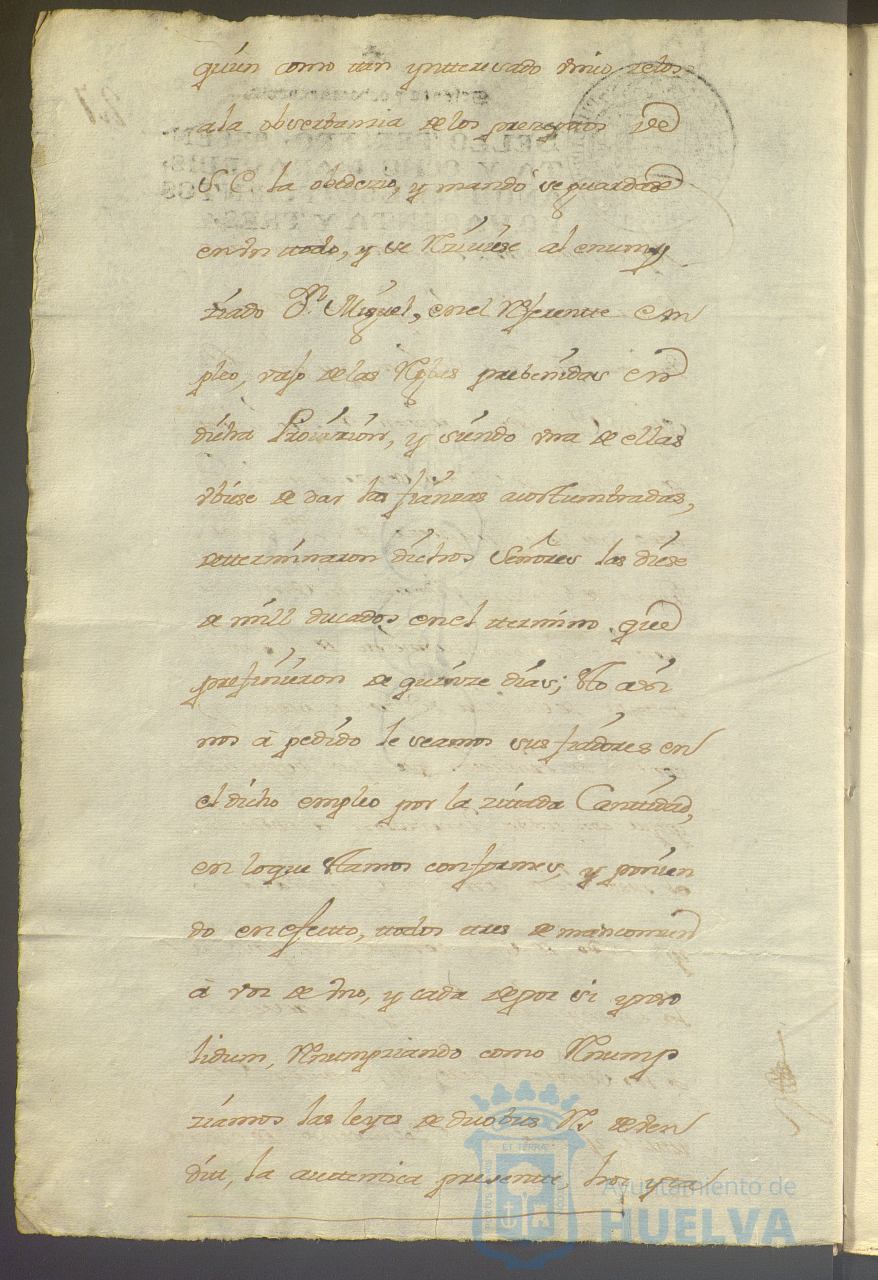 quien como tan ynteresado
a la obserbanzia de los preceptos de
S E la obedezio, y mando se guardase
en todo, y se rziuiese al enun
ziado Dn. Miguel, en el referente em
pleo, vajo de las prebenidas en
dicha Prouizion, y siendo vna de ellas
de dar las fianzas acostumbradas,
determinaron dichos Señores las diese
de mill ducados en el termino que
prefinieron de quinze dias;
nos à pedido le seamos sus fiadores en
el dicho empleo por la zittada Canttidad,
en lo que stamos conformes, y ponien
do en efecto, todos tres de mancomun
à voz de vno, y cada de por si ynso
lidum, Renumpziando como Renump
ziamos las leyes de duobus Rs deven
di, la auttentica presentte, hoc yta
Ayuntamiento de
HUELVA